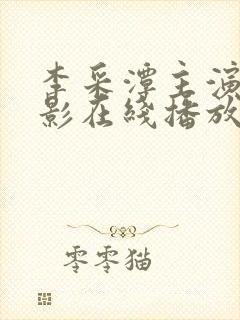 李采潭主演
影在线播放
零零猫